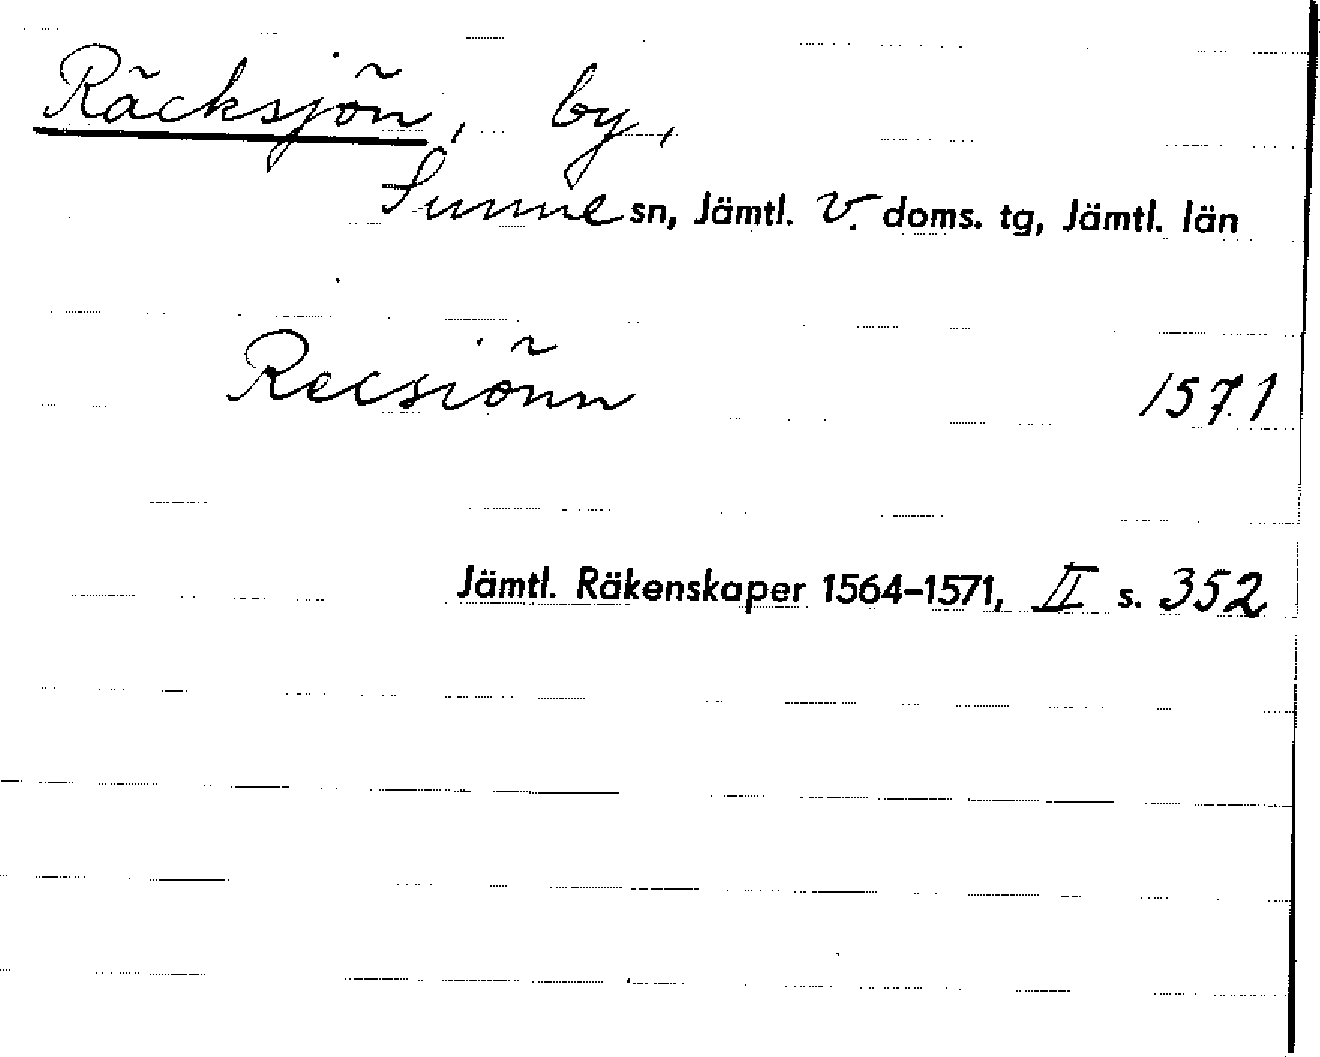 Räcksjön, by,
Sunne sn, Jämtl. v. doms. tg, Jämtl. län
Recsiönn 1571
Jämtl. Räkenskaper 1564–1571, II s. 352